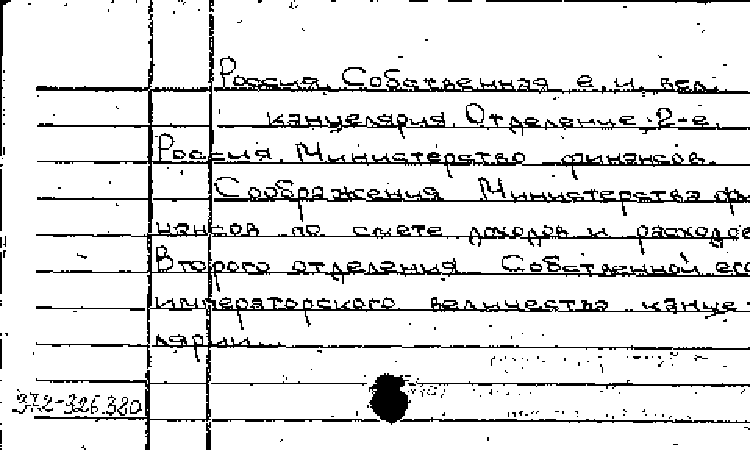 Россия. Собственная е. и. вел.
канцелярия. Отделение 2-е.
Россия. Министерство финансов.
Соображения Министерства фи
нансов по смете доходов и расходов
Второго отделения Собственной его
императорского величества канце-
лярии...
372-326.380